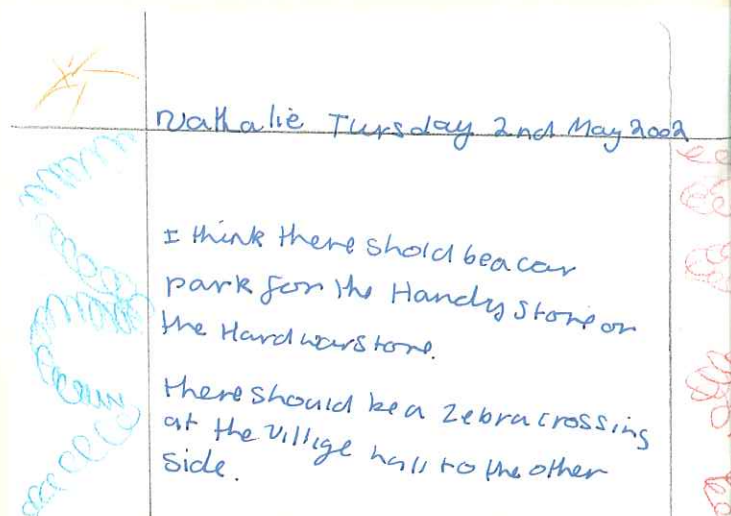 Nathalie Tursday 2nd May 2002
I think there shold be a car
park for the Handy Store or
the Hardwarstore.
there should be a Zebra crossing
at the Villige hall to the other
side.